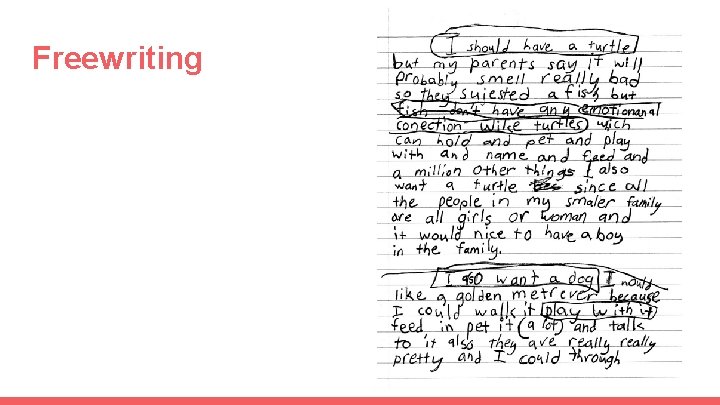 Freewriting
I should have a turtle
but my parents say it will
probably smell really bad
so they sujested a fish but
fish don't have any emotionanal
conection wilke turtles wich
can hold and pet and play
with and name and feed and
a million other things I also
want a turtle since all
the people in my smaler family
are all girls or woman and
it would nice to have a boy
in the family.
I also want a dog I would
like a golden metrever because
I could walk it play with it
feed in pet it (a lot) and talk
to it also they are really really
pretty and I could through